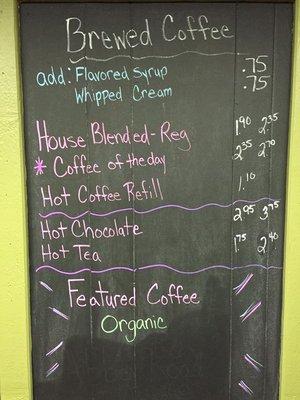 Brewed Coffee
add: Flavored Syrup .75
Whipped Cream .75
House Blended-Reg 1.90 2.35
* Coffee of the day 2.35 2.70
Hot Coffee Refill 1.10
Hot Chocolate 2.95 3.75
Hot Tea 1.75 2.40
Featured Coffee
Organic